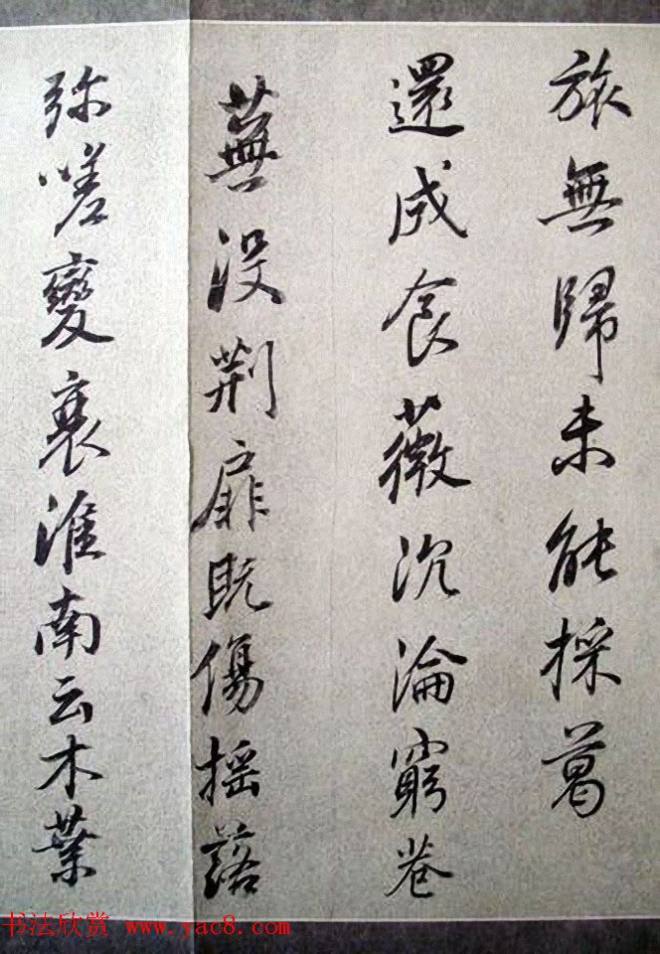 旅無歸未能採葛
還成食薇沉淪窮巷
蕪没荆扉既傷搖落
弥嗟變衰淮南云木葉
书法欣赏 www.yac8.com